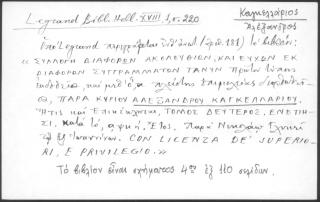 Legrand Bibl. Hell. XVIII, 1, σ. 220
Καγκελλάριος
Ἀλέξανδρος
Ὑπὸ Legrand περιγράφεται ὑπ' ἀριθ. 181) τὸ βιβλίον:
« ΣΥΛΛΟΓΗ ΔΙΑΦΟΡΩΝ ΑΚΟΛΟΥΘΙΩΝ, ΚΑΙ ΕΥΧΩΝ ΕΚ
ΔΙΑΦΟΡΩΝ ΣΥΓΓΡΑΜΜΑΤΩΝ ΤΑΝΥΝ πρῶτον τύποις
ἐκδοθεῖσα, καὶ μεθ' ὅσης πλείστης ἐπιμελείας διορθωθεῖ-
σα, ΠΑΡΑ ΚΥΡΙΟΥ ΑΛΕΞΑΝΔΡΟΥ ΚΑΓΚΕΛΛΑΡΙΟΥ.
Ἥτις καὶ Ἐπονομάζεται, ΤΟΜΟΣ ΔΕΥΤΕΡΟΣ, ΕΝΕΤΙΗ-
ΣΙ, Κατὰ τό, Ἔτος. Παρὰ Νικολάῳ Γλυκεῖ
τῷ ἐξ Ἰωαννίνων. CON LICENZA DE' SUPERIO-
RI, E PRIVILEGIO. »
Τὸ βιβλίον εἶναι σχήματος 4ου ἐξ 110 σελίδων.